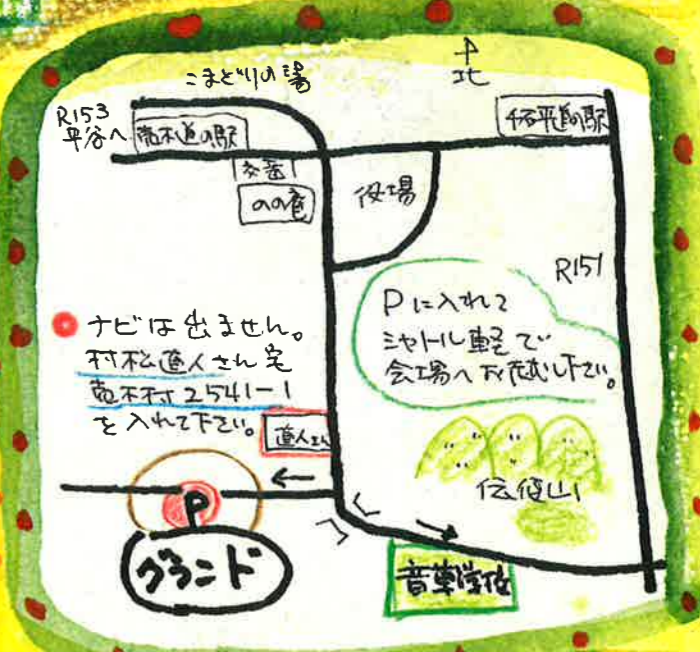 北
こまどりの湯
R153
平谷へ
売木道の駅
千石平道の駅
交番
のの庵
役場
R151
Pに入れて
シャトル軽で
会場へお進み下さい。
ナビは出ません。
村松直人さん宅
売木村2541-1
を入れて下さい。
直人さん
P
グランド